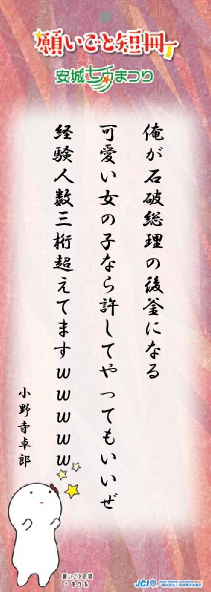 願いごと短冊
安城七夕まつり
俺が石破総理の後釜になる
可愛い女の子なら許してやってもいいぜ
経験人数三桁超えてますｗｗｗｗｗ
小野寺卓郎
願いごと短冊
JCI